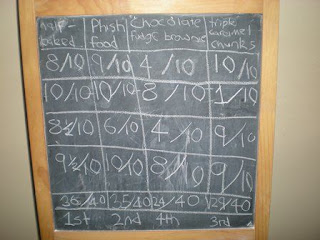 half- Phish Chocolate triple
baked food fudge brownie caramel
chunks
8/10 9/10 4/10 10/10
10/10 10/10 8/10 1/10
8½/10 6/10 4/10 9/10
9½/10 10/10 8/10 9/10
36/40 35/40 24/40 29/40
1st 2nd 4th 3rd